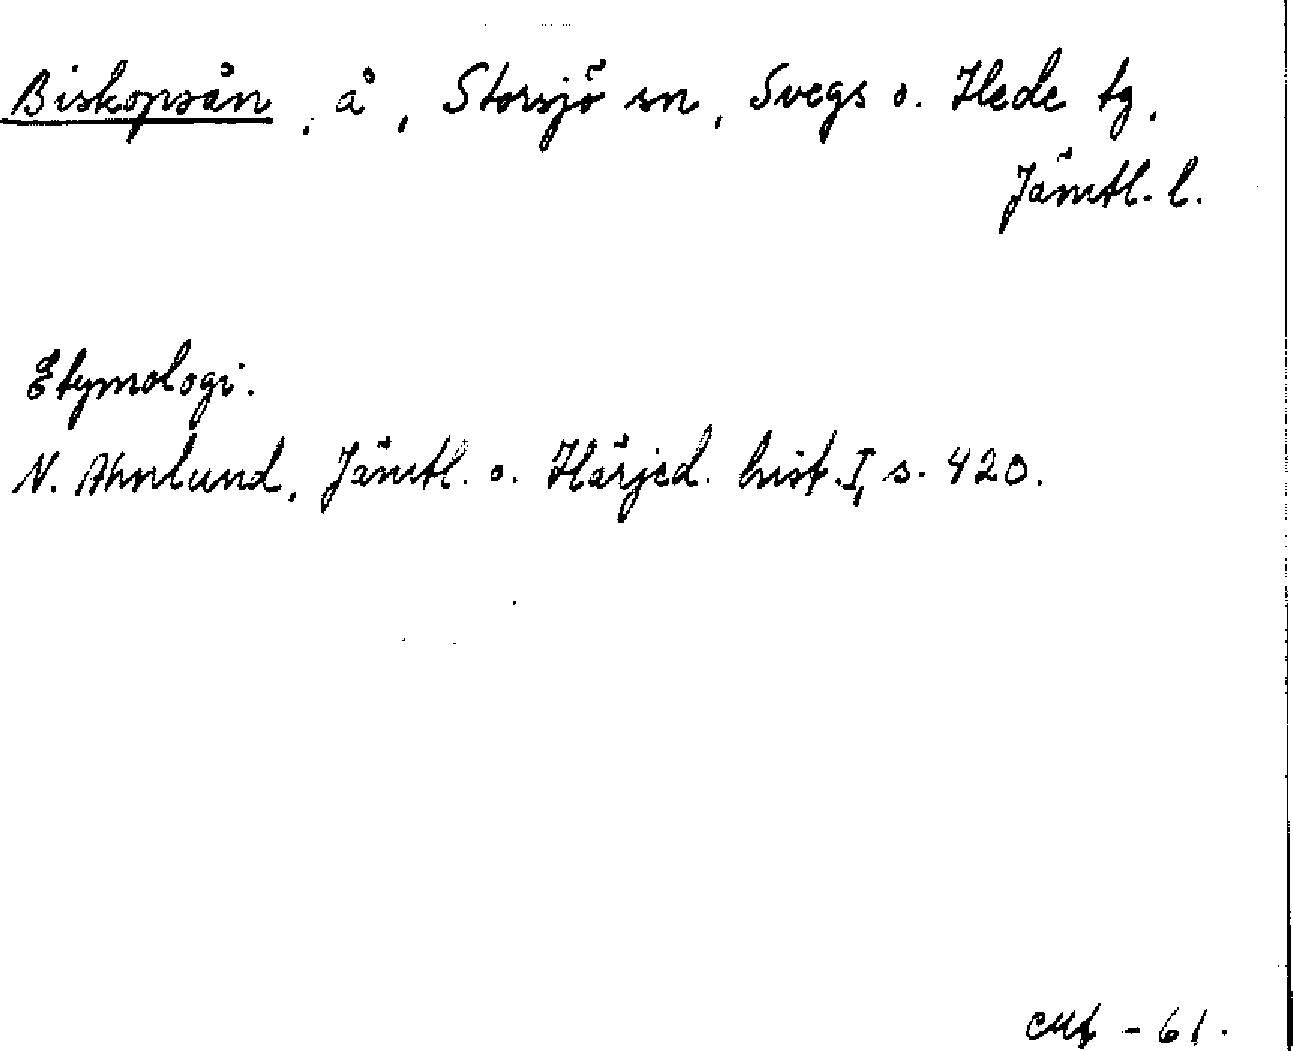 Biskopsån, å, Storsjö sn, Svegs o. Hede tg.
Jämtl. l.
Etymologi.
N. Ahnlund, Jämtl. o. Härjed. hist. I, s. 420.
- 61.